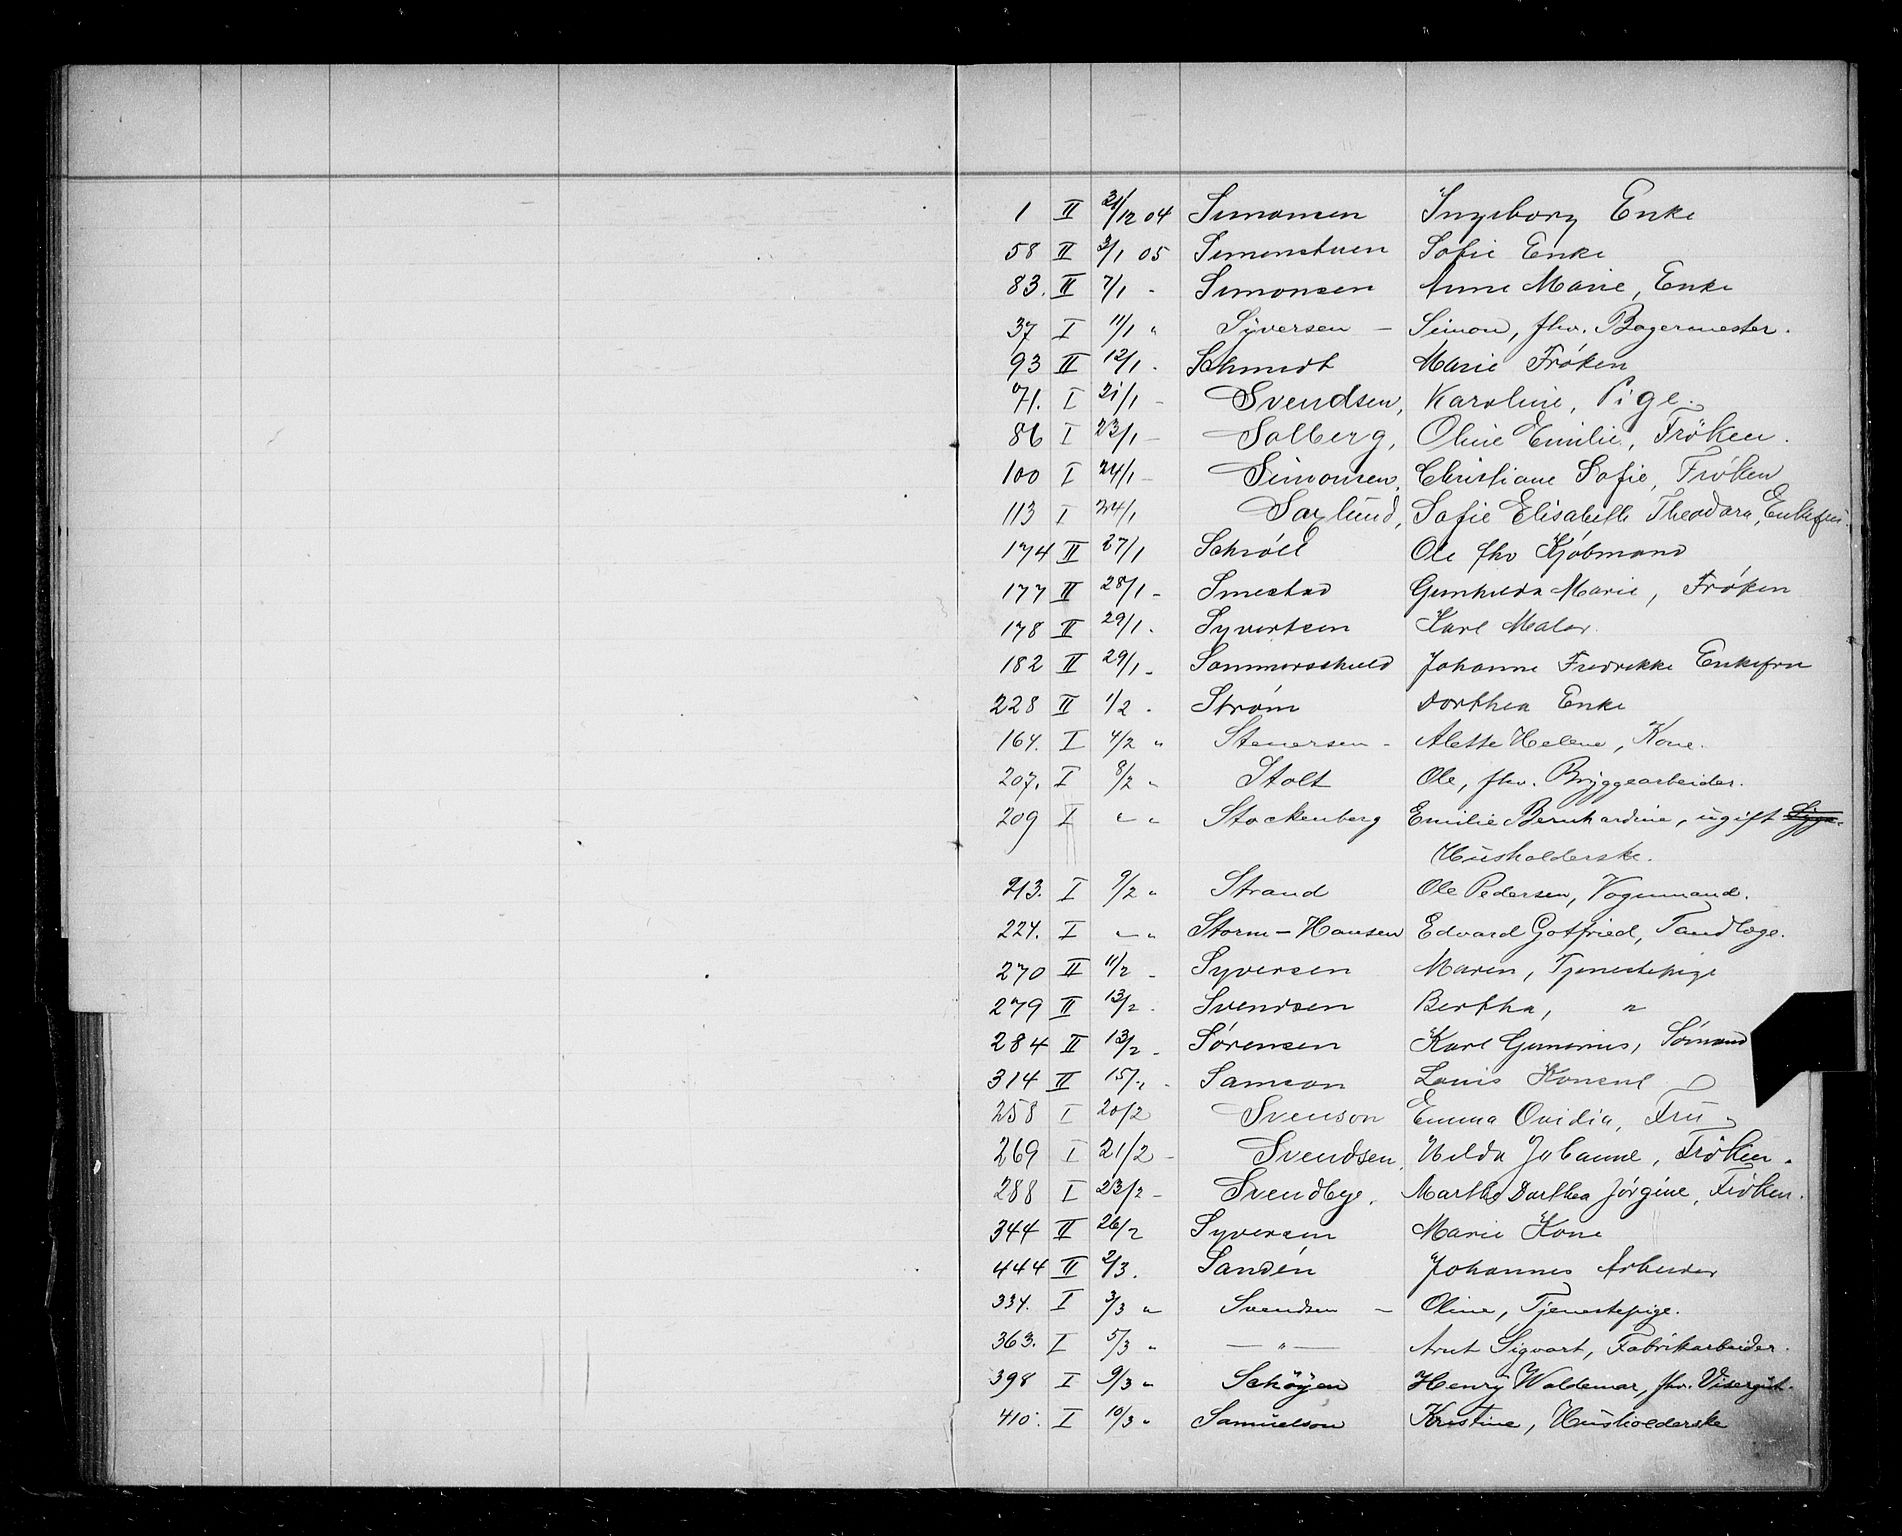 1 II 31/12 04 Simonsen Ingeborg Enke
58 II 3/1 05 Simenstuen Sofie Enke
83. II 7/1 - Simonsen Anne Marie, Enke
37 I 11/1 " Syversen - Simon, fhv. Bagermester.
93 II 12/1 - Schmidt Marie Frøken
71. I 21/1 - Svendsen, Karoline, Pige.
86 I 23/1 - Solberg, Oline Emilie, Frøken.
100 I 24/1 - Simonsen, Christiane Sofie, Frøken
113 I 24/1 Saxlund, Sofie Elisabeth Theodora, Enkefru.
174 II 27/1 Schröll Ole fhv Kjøbmand
177 II 28/1 - Smestad Gunhilda Marie, Frøken
178 II 29/1 - Syvertsen Karl Maler
182 II 29/1 - Sommerschield Johanne Fredrikke Enkefru
228 II 1/2 - Strøm Dorthea Enke
164. I 4/2 " Stenersen - Alette Helene, Kone.
207. I 8/2 " Stolt Ole, fhv. Bryggearbeider.
209 I " " Stockenberg Emilie Bernhardine, ugift
Husholderske.
213. I 9/2 " Strand Ole Pedersen, Vognmand.
224. I " " Storm-Hansen Edvard Gotfried, Tandlæge.
270 II 11/2 - Syversen Maren, Tjenestepige
279 II 13/2 - Svendsen Bertha, "
284 II 13/2 - Sørensen Karl Gunerius, Sømand
314 II 15/2 - Samson Louis Konsul
258 I 20/2 Svenson Emma Ovidia, Fru
269 I 21/2 - Svendsen, Hilda Johanne, Frøken.
288 I 23/2 - Svendbye, Marthe Dorthea Jørgine, Frøken.
344 II 26/2 Syversen Marie Kone
444 II 2/3. Sandén Johannes Arbeider
334. I 3/3 " Svendsen - Oline, Tjenestepige.
363. I 5/3 " — " — Arnt Sigvart, Fabrikarbeider.
398 I 9/3 " Schøyen Henry Waldemar, fhv. Visergut.
410. I 10/3 " Samuelson Kristine, Husholderske